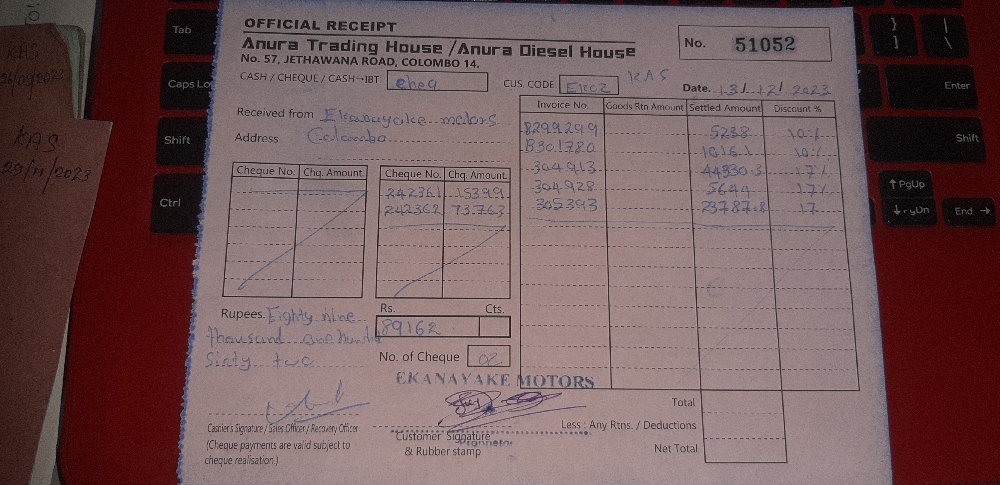 OFFICIAL RECEIPT
Anura Trading House /Anura Diesel House
No. 57, JETHAWANA ROAD, COLOMBO 14.
No. 51052
CASH / CHEQUE / CASH→IBT cheq
CUS. CODE EK02
KAS
Date. 13/12/2023
Received from Ekanayake motors
Address Colombo
Invoice No. Goods Rtn Amount Settled Amount Discount %
8299299 5238 10%
B301780 10%
304913 44330.3 17%
304928 5644 17%
305393 23787.8 17
Cheque No. Chq. Amount Cheque No. Chq. Amount
242361 15399
242362 73763
Rupees. Eighty nine
thousand one hundred
Sixty two
Rs. Cts.
89162
No. of Cheque 02
EKANAYAKE MOTORS
Proprietor
Cashier's Signature / Sales Officer / Recovery Officer
(Cheque payments are valid subject to
cheque realisation.)
Customer Signature
& Rubber stamp
Total
Less : Any Rtns. / Deductions
Net Total
KAS
26/09/2023
KAS
29/11/2023
Tab
Caps Lo
Shift
Ctrl
}
]
|
\
Enter
Shift
↑ PgUp
↓ PgDn
End →